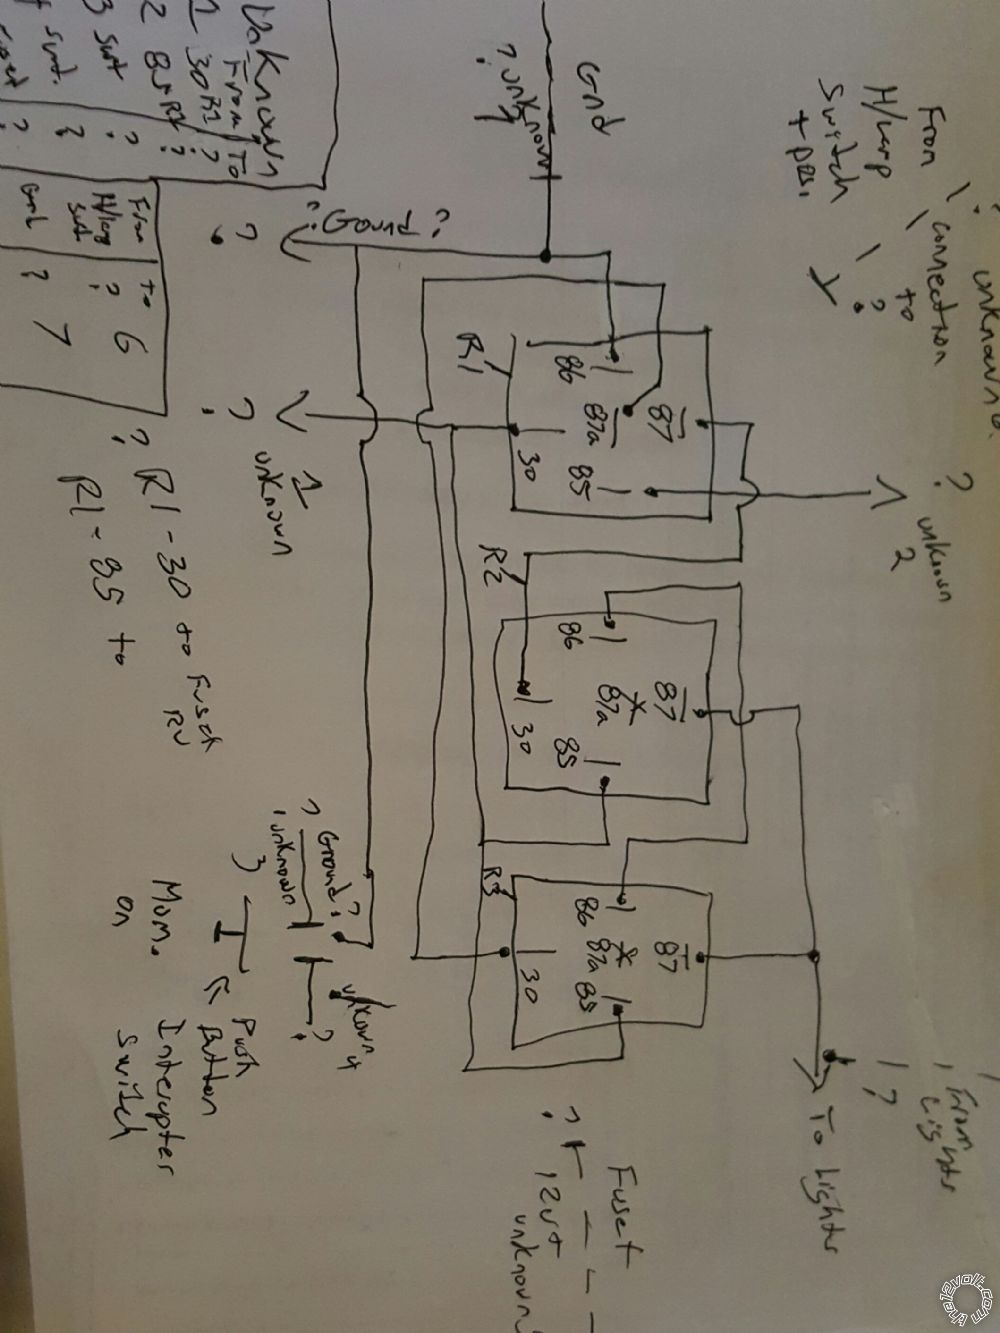 Unknown
From | To
1 30 R1 ?
2 85 R1 ?
3 Swt ?
Swt. ?
?
From To
H/lamp ? 6
Swt
Gnd ? 7
Gnd
? unknown
?
From
H/lamp
Switch
+ pos.
? unknown
connection
to
?
? Ground ?
?
?
1
unknown
? unknown
2
R1
86
87a
87
30
85
R2
86
87a
87
30
85
R3
86
87a
87
30
85
? R1 - 30 to Fused
RV
R1 - 85 to
? Ground ?
unknown
3
unknown 4
?
Mom.
on
Push
Button
Interupter
Switch
To Lights
From
Lights
?
Fused
? + 12v+
unknown
the12volt.com